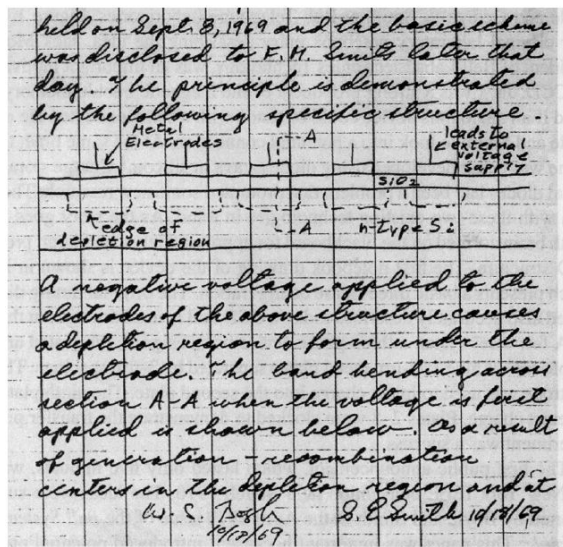 held on Sept. 8, 1969 and the basic scheme
was disclosed to F. M. Smits later that
day. The principle is demonstrated
by the following specific structure.
Metal
Electrodes
A
leads to
external
voltage
supply
SiO2
edge of
depletion region
A
n-type Si
A negative voltage applied to the
electrodes of the above structure causes
a depletion region to form under the
electrode. The band bending across
section A-A when the voltage is first
applied is shown below. As a result
of generation - recombination
centers in the depletion region and at
W. S. Boyle
G. E. Smith 10/18/69